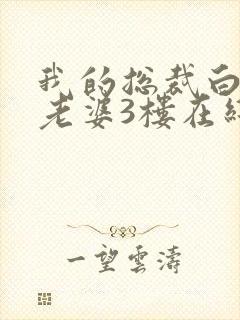 我的总裁白
老婆3楼在
一望雲濤